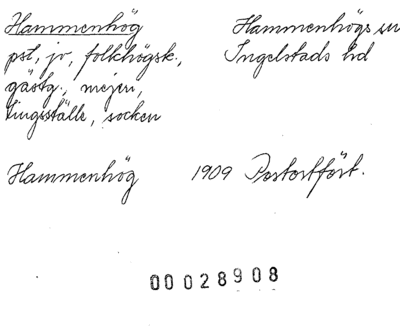 Hammenhög Hammenhögs sn
pst, jv, folkhögsk., Ingelstads hd
gästg., mejeri,
tingsställe, socken
Hammenhög 1909 Postortfört.
00028908